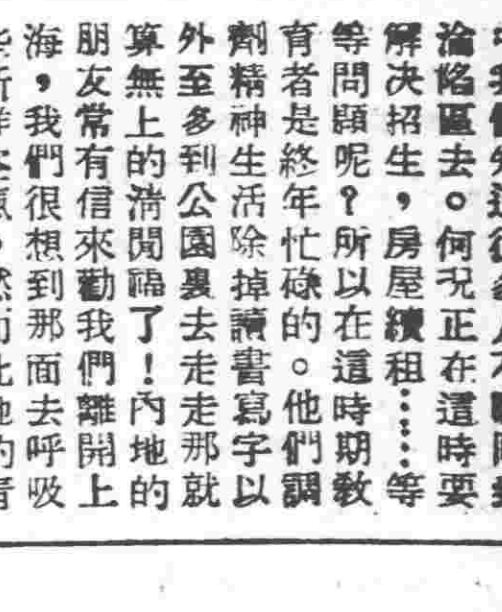 淪陷區去。何况正在這時要
解决招生，房屋續租……等
等問題呢？所以在這時期教
育者是終年忙碌的。他們調
劑精神生活除掉讀書寫字以
外至多到公園裏去走走那就
算無上的清閒福了！內地的
朋友常有信來勸我們離開上
海，我們很想到那面去呼吸